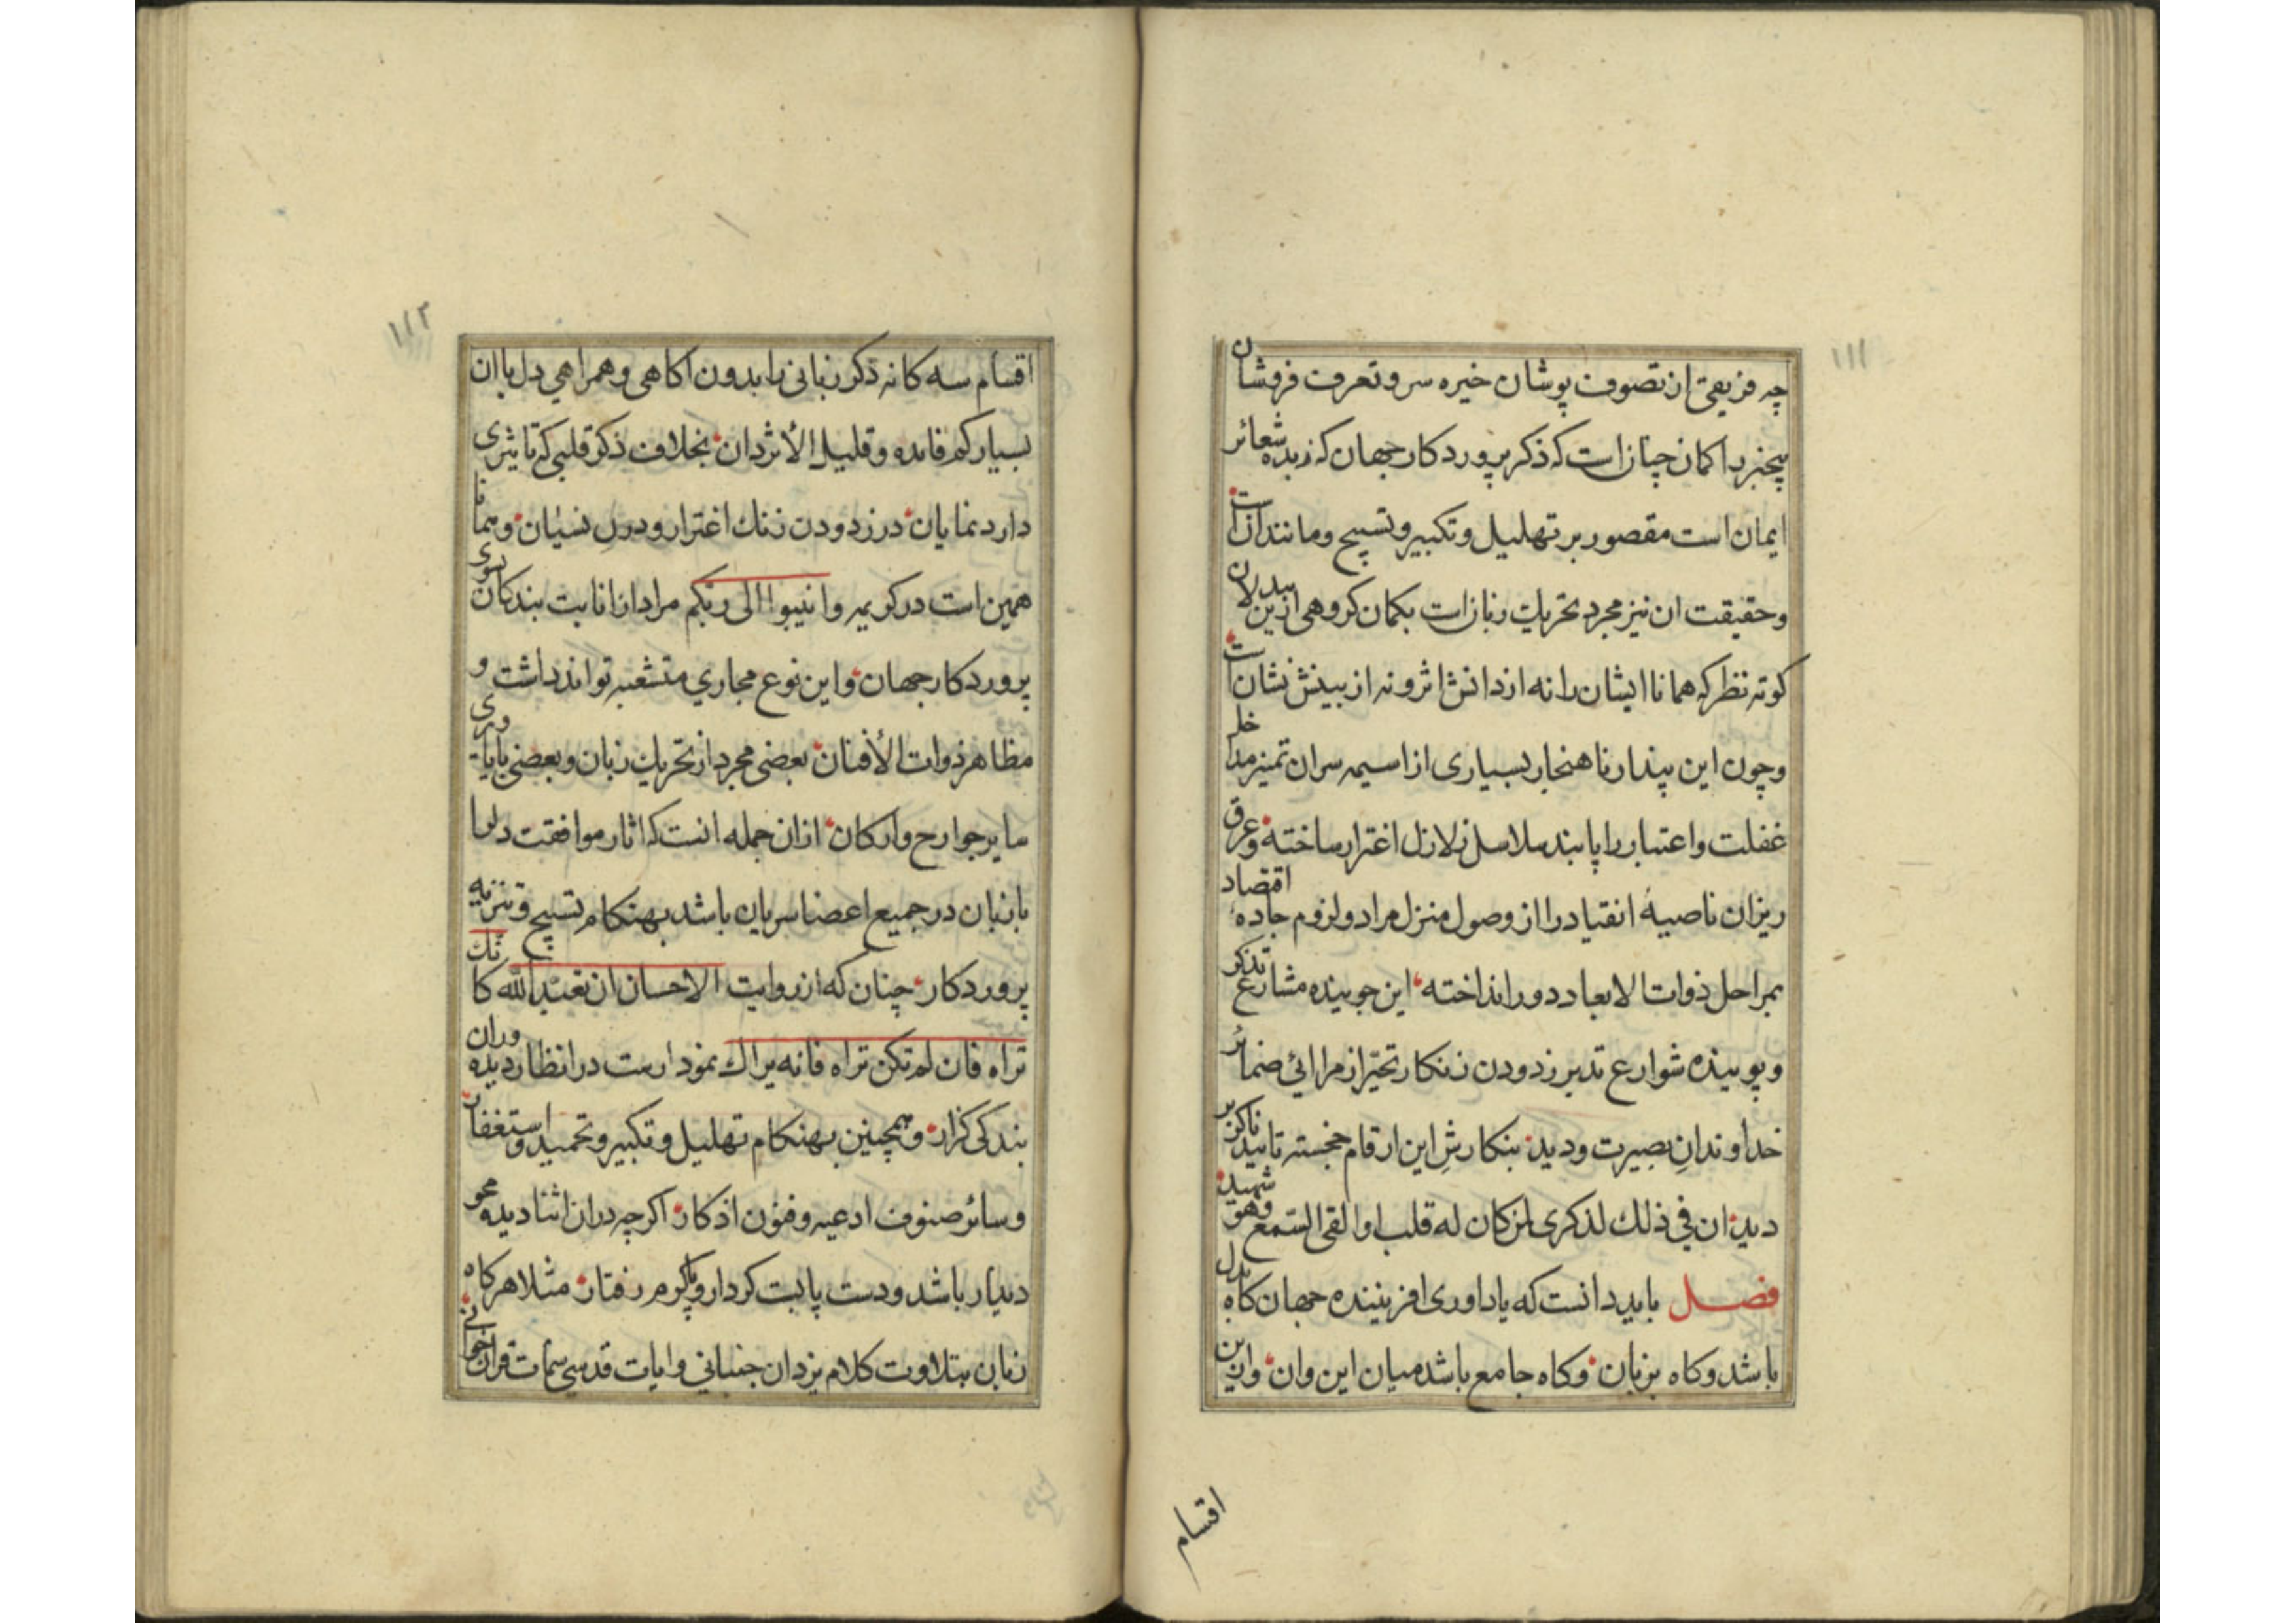 ۱۱۱
چه فریقی از تصوف پوشان خیره سر و تعرف فروشان
بیخبر را کمان چنان است که ذکر پروردکار جهان که زبده شعائر
ایمان است مقصور بر تهلیل و تکبیر و تسبیح و مانند آن است
و حقیقت ان نیز مجرد تحریک زبان است بکمان کروهی ازین بیدلان
کوته نظر که همانا ایشان را نه از دانش اثر و نه از بینش نشان است
و چون این پندار ناهنجار بسیاری از اسیمه سران تمیز مدا خل
غفلت و اعتبار را پابند سلاسل زلازل اغترار ساخته و عرق
ریزان ناصیهٔ انقیاد را از وصول منزل مراد و لزوم جادهٔ اقتصاد
بمراحل ذوات الابعاد دور انداخته این جوینده مشارع تذکر
و پوینده شوارع تدبر زدودن زنکار تحیّر از مرائی ضمائر
خداوندانِ بصیرت و دید بنکارشِ این ارقام خجسته تایید ناکزیر
دید ان فی ذلک لذکری لمن کان له قلب او القی السّمع وهو شهید
فصل باید دانست که یاداوری افریننده جهان کاه بدل
باشد و کاه بزبان و کاه جامع باشد میان این وان و این
اقسام
۱۱۲
اقسام سه کانه ذکر زبانی را بدون اکاهی و همراهی دل با ان
بسیار کم فائده و قلیل الأثر دان بخلاف ذکر قلبی که تاثیری
دارد نمایان در زدودن زنک اغترار و درنِ نسیان و همانا
همین است در کریمه وانیبوا الی ربّکم مراد از انابت بندکان بسوی
پروردکار جهان و این نوع مجاري متشعبه تواند داشت و
مظاهر ذوات الأفنان بعضی مجرد از تحریک زبان و بعضی با یاوری
سایر جوارح و ارکان ازان جمله انست که اثار موافقت دلرا
با زبان در جمیع اعضا سریان باشد بهنکام تسبیح و تنزیه
پروردکار چنان که از روایت الاحسان ان تعبد الله کانّک
تراه فان لم تکن تراه فانه یراک نمودارست در انظار دیده وران
بندکی کزار و همچنین بهنکام تهلیل و تکبیر و تحمید و استغفار
و سائر صنوف ادعیه و فنون اذکار اکرچه دران اثنا دیده محو
دیدار باشد و دست پابت کردار و پا کرم رفتار مثلا هرکاه
زبان بتلاوت کلام یزدان جنبانی و ایات قدسی سمات قران خوانی